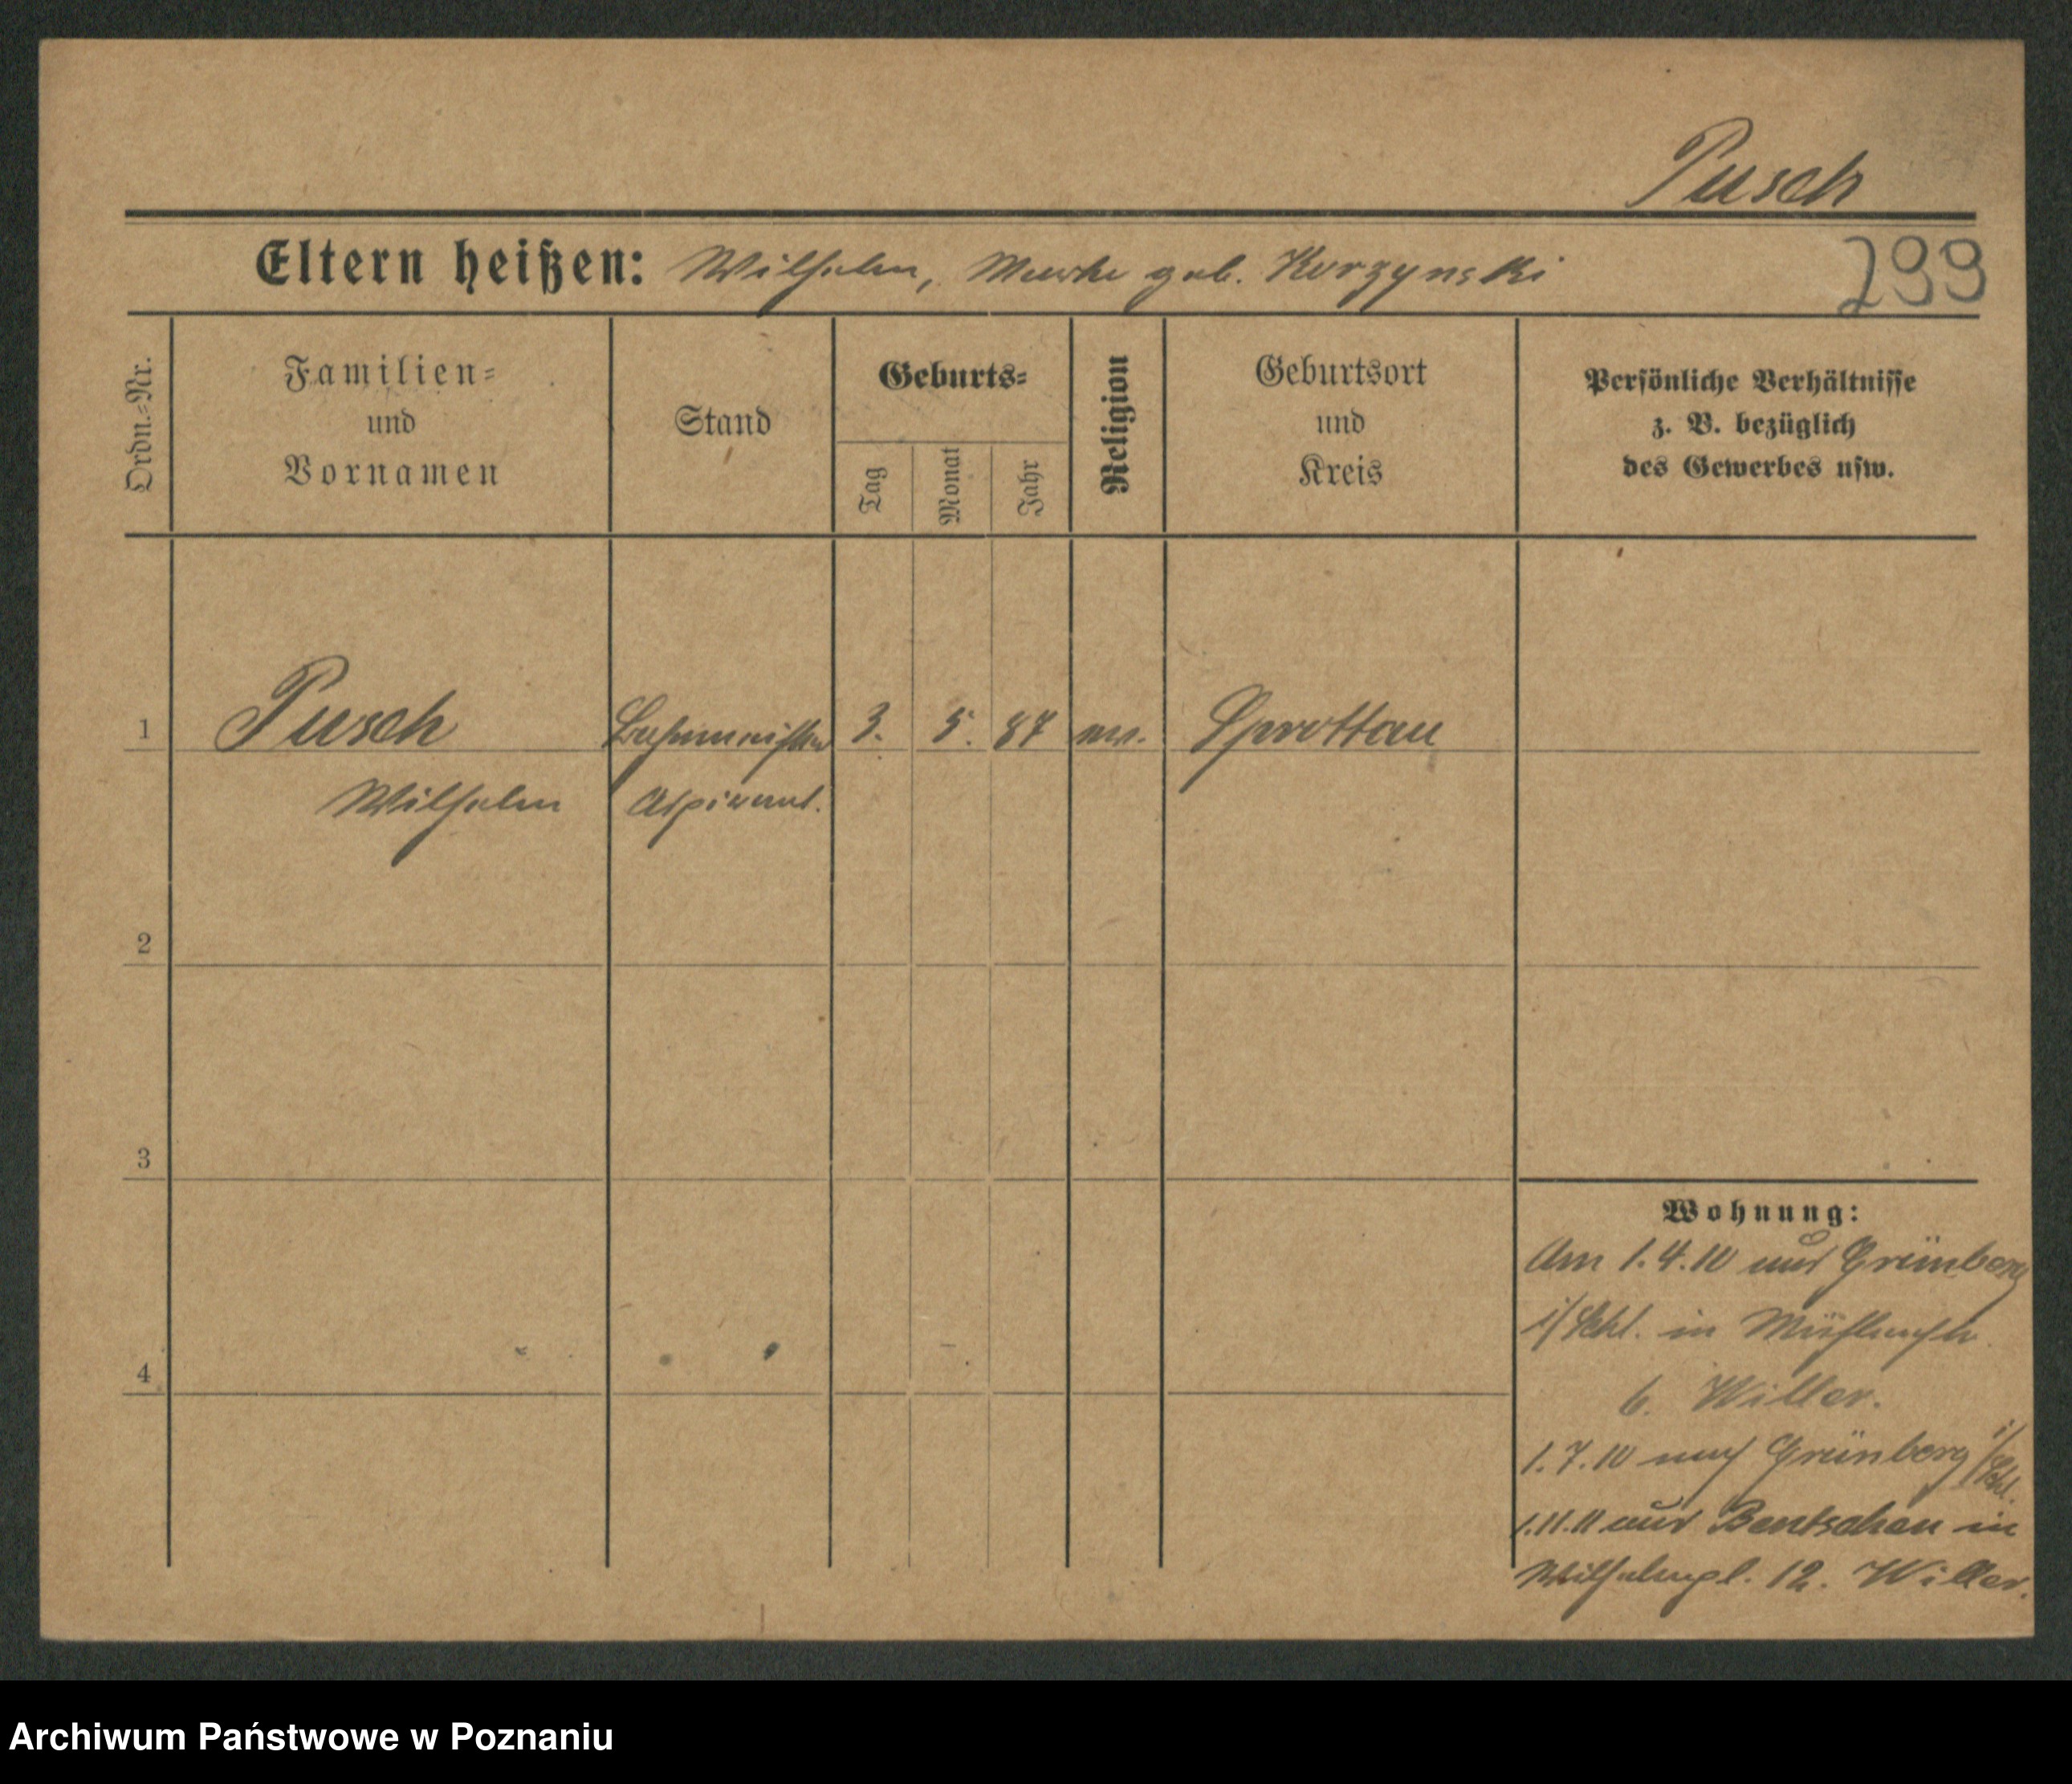 Pusch
Eltern heißen: Wilhelm, geb. Korzynski
299
Ordn.-Nr.
Familien-
und
Vornamen
Stand
Geburts-
Tag
Monat
Jahr
Religion
Geburtsort
und
Kreis
Persönliche Verhältnisse
z. B. bezüglich
des Gewerbes usw.
1 Pusch Bahnmeister 3. 5. 87 ev. Sprottau
Wilhelm Aspirant.
2
3
Wohnung:
Am 1.4.10 aus Grünberg
i/Schl. in
4
6. Willer.
1.7.10 nach Grünberg i/Schl.
1.11.11 aus Bentschen in
Wilhelmpl. 12. Willer.
Archiwum Państwowe w Poznaniu